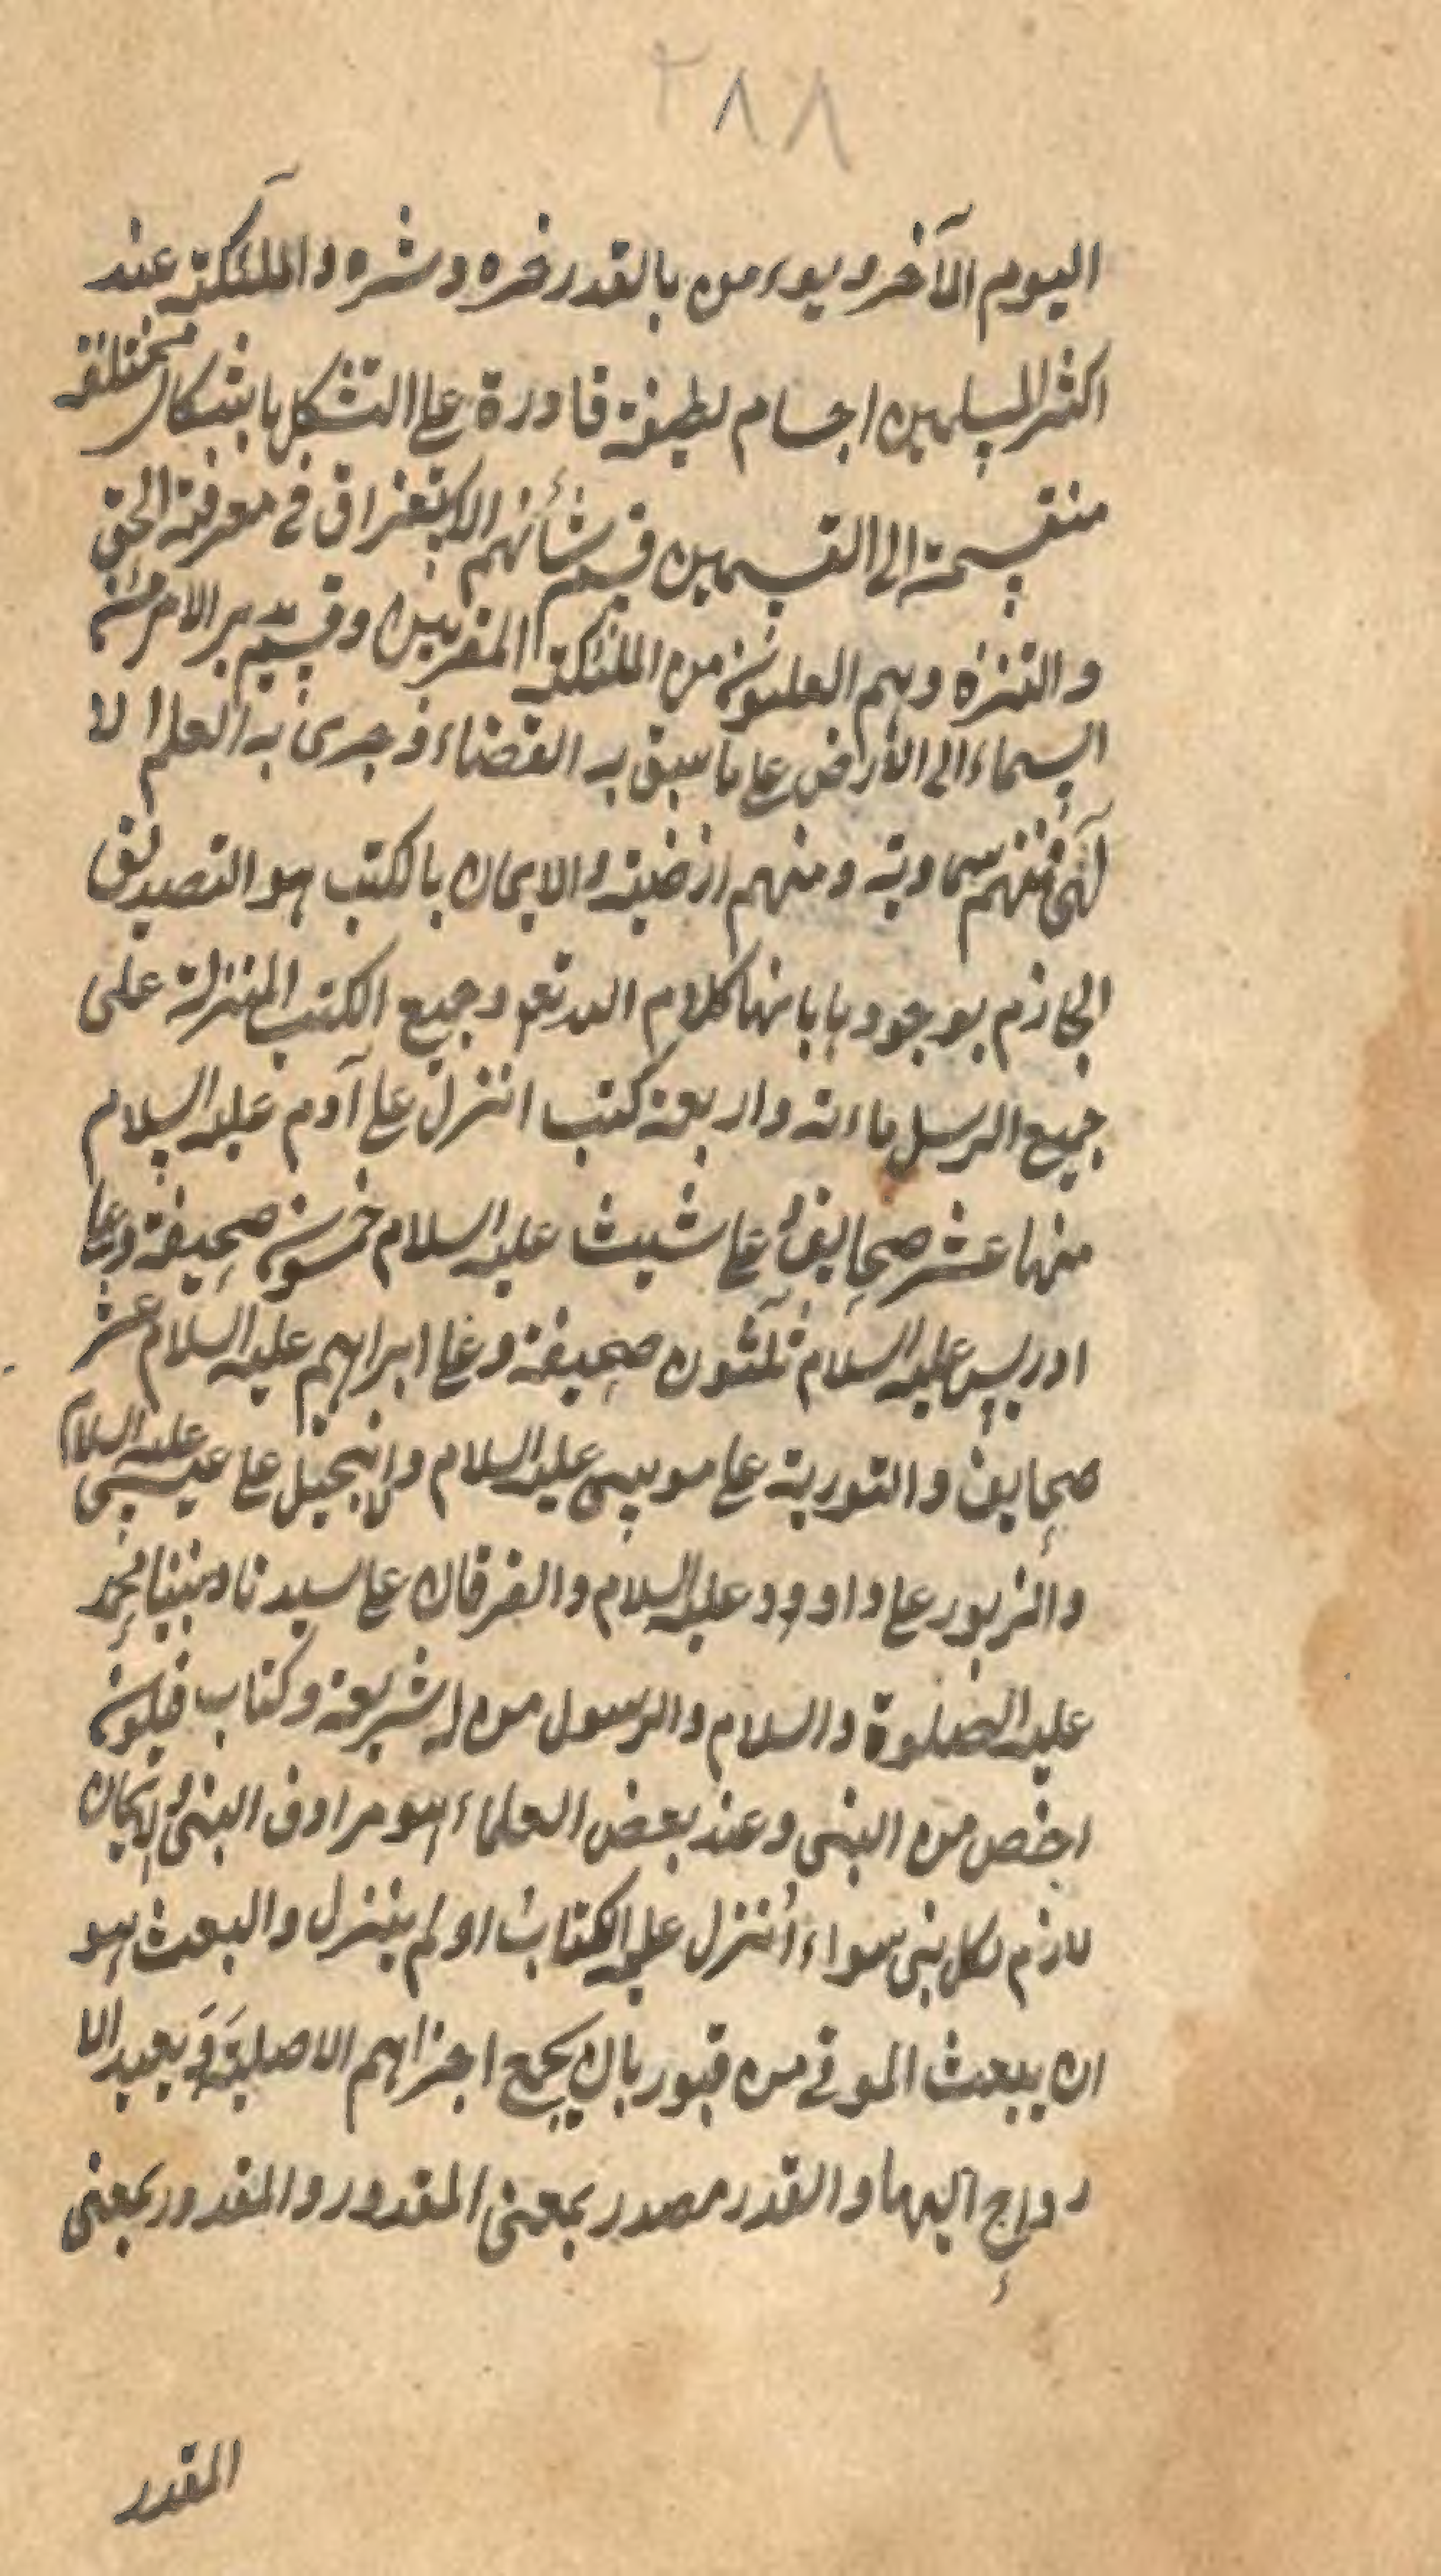 ٢٨٨
اليوم الآخر ويوءمن بالقدر خره وشره والملئكة عند
اكثر المسلمين اجسام لطيفة قادرة على التشكل باشكال مختلفة
منقسمة الى القسمين قسم شأنهم الاستغراق في معرفة الحق
والتنزه وهم العليون من الملئكة المقربين وقسم يدبر الامر من
السماء الى الارض على ما سبق به القضاء وجرى به القلم الا
لهى فمنهم سماوية ومنهم ارضية والايمان بالكتب هو التصديق
الجازم بوجودها بانها كلام الله تعم وجميع الكتب المنزلة على
جميع الرسل ماءة واربعة كتب انزل على آدم عليه السلام
منها عشر صحايف وعلى شيث عليه السلام خمسون صحيفة وعلى
ادريس عليه السلام ثلثون صحيفة وعلى ابراهيم عليه السلام عشر
صحايف والتورية على موسى عليه السلام والانجيل على عيسى عليه السلام
والزبور على داوود عليه السلام والفرقان على سيدنا ونبينا محمد
عليه الصلوة والسلام والرسول من له شريعة وكتاب فيكون
اخص من النبى وعند بعض العلماء هو مرادف النبى والايمان
لازم لكل نبى سواء أنزل عليه الكتاب او لم ينزل والبعث هو
ان يبعث الموتى من قبور بان يجمع اجزاهم الاصلية وَيعيد الا
رواح اليها والقدر مصدر بمعنى المقدور والمقدور بمعنى
المقدر